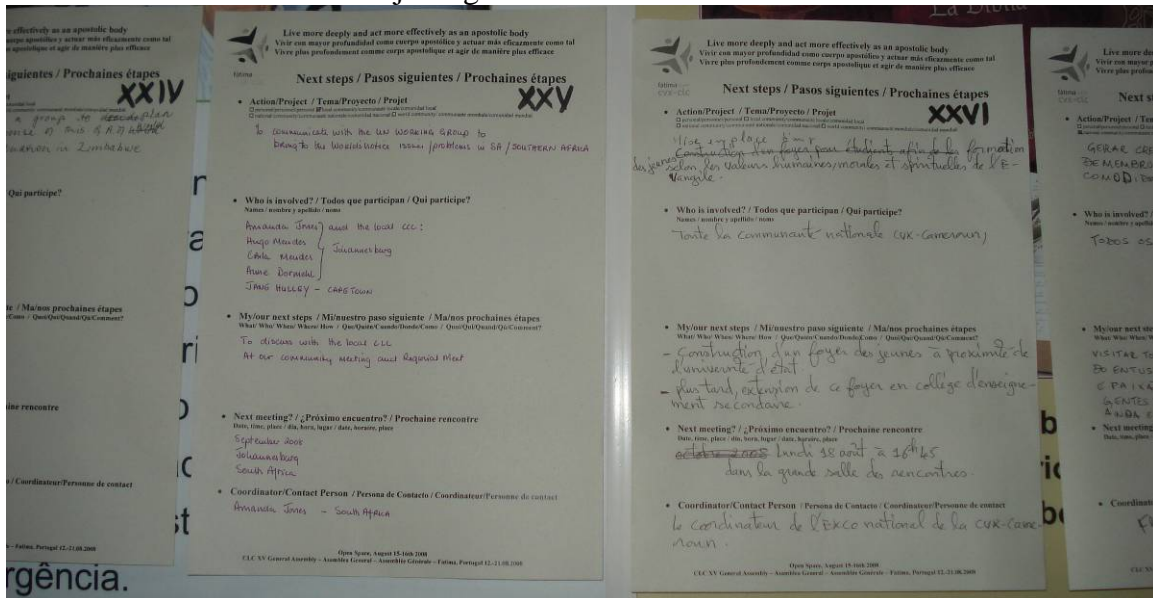 La Biblia
e effectively as an apostolic body
cuerpo apostólico y actuar más eficazmente como tal
apostolique et agir de manière plus efficace
siguientes / Prochaines étapes
XXIV
a group to plan
in Zimbabwe
Qui participe?
/ Ma/nos prochaines étapes
/ Quoi/Qui/Quand/Où/Comment?
aine rencontre
/ Coordinateur/Personne de contact
– Fatima, Portugal 12.-21.08.2008
rgência.
Live more deeply and act more effectively as an apostolic body
Vivir con mayor profundidad como cuerpo apostólico y actuar más eficazmente como tal
Vivre plus profondement comme corps apostolique et agir de manière plus efficace
fátima
Next steps / Pasos siguientes / Prochaines étapes
XXV
• Action/Project / Tema/Proyecto / Projet
To communicate with the UN WORKING GROUP to
bring to the issues/problems in SA / SOUTHERN AFRICA
• Who is involved? / Todos que participan / Qui participe?
Names / nombre y apellido / noms
Amanda Jones and the local CLC:
Hugo Mendes
Carla Mendes Johannesburg
Anne Dormehl
JANS HULLEY – CAPE TOWN
• My/our next steps / Mi/nuestro paso siguiente / Ma/nos prochaines étapes
What/ Who/ When/ Where/ How / Que/Quién/Cuando/Donde/Como / Quoi/Qui/Quand/Où/Comment?
To discuss with the local CLC
At our community Meeting and Regional Meet
• Next meeting? / ¿Próximo encuentro? / Prochaine rencontre
Date, time, place / día, hora, lugar / date, horaire, place
September 2008
Johannesburg
South Africa
• Coordinator/Contact Person / Persona de Contacto / Coordinateur/Personne de contact
Amanda Jones – South Africa
Open Space, August 15-16th 2008
CLC XV General Assembly – Asamblea General – Assemblée Générale – Fatima, Portugal 12.-21.08.2008
Live more deeply and act more effectively as an apostolic body
Vivir con mayor profundidad como cuerpo apostólico y actuar más eficazmente como tal
Vivre plus profondement comme corps apostolique et agir de manière plus efficace
fátima
cvx-clc
Next steps / Pasos siguientes / Prochaines étapes
XXVI
• Action/Project / Tema/Proyecto / Projet
Construction d'un foyer pour étudiant afin de la formation
des jeunes selon les valeurs humaines, morales et spirituelles de l'E-
vangile.
• Who is involved? / Todos que participan / Qui participe?
Names / nombre y apellido / noms
Toute la communauté nationale CVX-Cameroun,
• My/our next steps / Mi/nuestro paso siguiente / Ma/nos prochaines étapes
What/ Who/ When/ Where/ How / Que/Quién/Cuando/Donde/Como / Quoi/Qui/Quand/Où/Comment?
– Construction d'un foyer des jeunes à proximité de
l'université d'état
– plus tard, extension de ce foyer en collège d'enseigne-
ment secondaire.
• Next meeting? / ¿Próximo encuentro? / Prochaine rencontre
Date, time, place / día, hora, lugar / date, horaire, place
octobre 2008 lundi 18 août à 16h45
dans la grande salle des rencontres.
• Coordinator/Contact Person / Persona de Contacto / Coordinateur/Personne de contact
le coordinateur de l'EXCO national de la CVX-Came-
roun.
Open Space, August 15-16th 2008
CLC XV General Assembly – Asamblea General – Assemblée Générale – Fatima, Portugal 12.-21.08.2008
Live more de
Vivir con mayor p
Vivre plus profond
fátima
cvx-clc
Next s
• Action/Project / Tem
GERAR
DE MEMBRO
• Who is involved? /
Names / nombre y apellido
TODOS OS
• My/our next ste
What/ Who/ When/ Wh
VISITAR TO
E PAIXÃ
GENTES
AINDA E
• Next meeting
Date, time, place /
• Coordinato
CLC XV